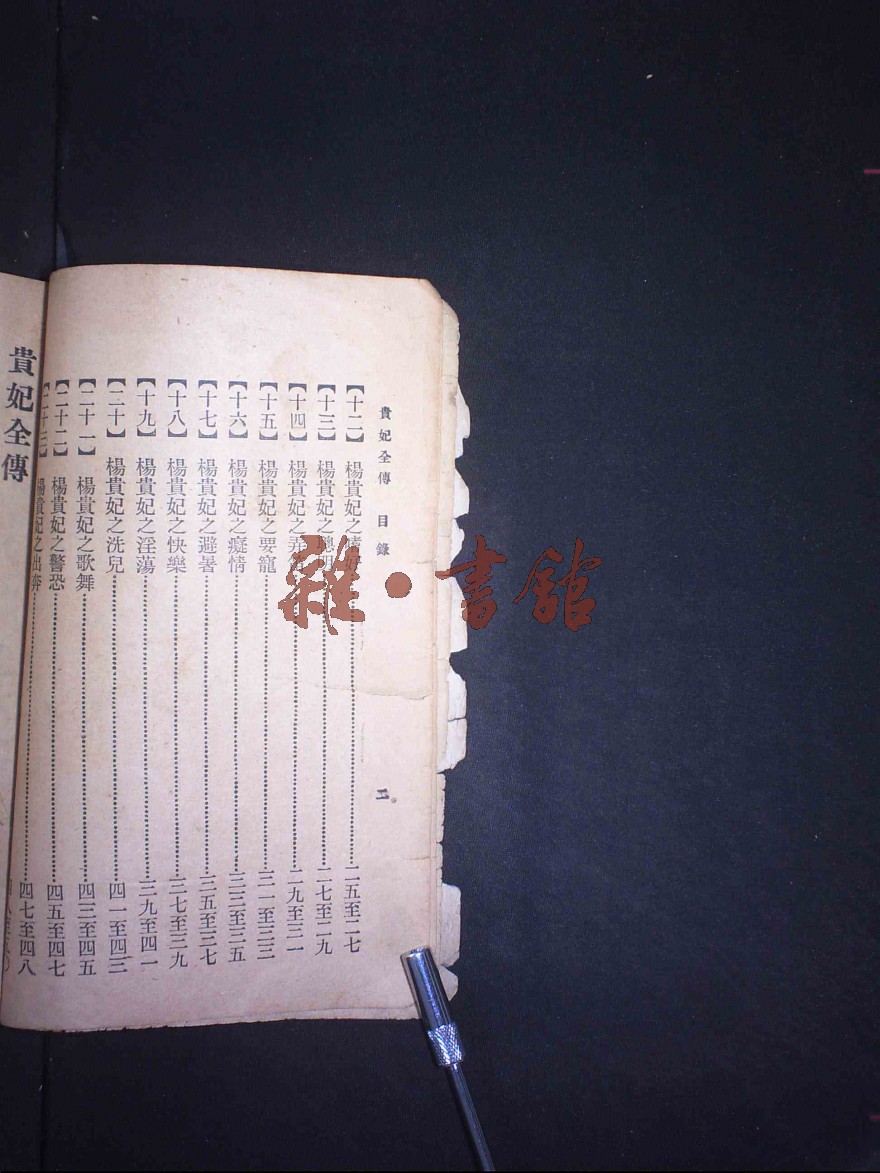 貴妃全傳 目錄 二
【十二】 楊貴妃之 二五至二七
【十三】 楊貴妃之聰明 二七至二九
【十四】 楊貴妃之弄 二九至三一
【十五】 楊貴妃之要寵 三一至三三
【十六】 楊貴妃之癡情 三三至三五
【十七】 楊貴妃之避暑 三五至三七
【十八】 楊貴妃之快樂 三七至三九
【十九】 楊貴妃之淫蕩 三九至四一
【二十】 楊貴妃之洗兒 四一至四三
【二十一】 楊貴妃之歌舞 四三至四五
【二十二】 楊貴妃之警恐 四五至四七
【二十三】 楊貴妃之出奔 四七至四八
貴妃全傳
雜·書館